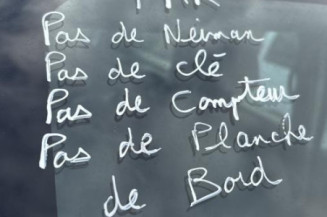 Pas de Neiman
Pas de clé
Pas de Compteur
Pas de Planche
de Bord